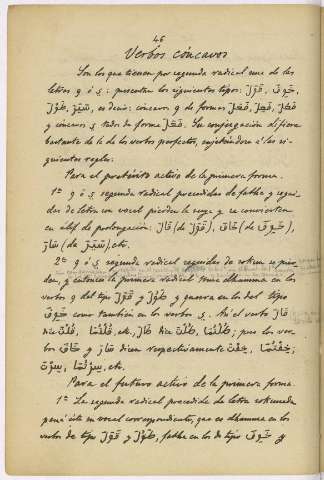 46
Verbos cóncavos
Son los que tienen por segunda radical una de las
letras و ó ي: presentan los siguientes tipos: قَوَلَ, خَوِفَ,
طَوُلَ, سَيَرَ, es decir: cóncavos و de formas فَعَلَ, فَعِلَ, فَعُلَ
y cóncavos ي todos de forma فَعَلَ. Su conjugación difiere
bastante de la de los verbos perfectos, sujetándose á las si-
guientes reglas:
Para el pretérito activo de la primera forma.
1ª و ó ي segunda radical precedidas de fatha y segui-
das de letra con vocal pierden la suya y se convierten
en álif de prolongación: قَالَ (de قَوَلَ), خَافَ (de خَوِفَ),
سَارَ (de سَيَرَ), etc.
2ª و ó ي segunda radical seguidas de sokun se pier-
den, y entonces la primera radical toma dhamma en los
verbos و del tipo قَوَلَ y طَوُلَ y quesra en los del tipo
خَوِفَ como también en los verbos ي. Así el verbo قَالَ
dice قُلْتَ, قُلْتُمَا, etc., طَالَ dice طُلْتَ, طُلْتُمَا; pero los ver-
bos خَافَ y سَارَ dicen respectivamente خِفْتَ, خِفْتُمَا;
سِرْتَ, سِرْتُمَا, etc.
Para el futuro activo de la primera forma
1ª La segunda radical precedida de letra sokunada
pasa á ésta su vocal correspondiente, que es dhamma en los
verbos de tipo قَوَلَ y طَوُلَ, fatha en los de tipo خَوِفَ y